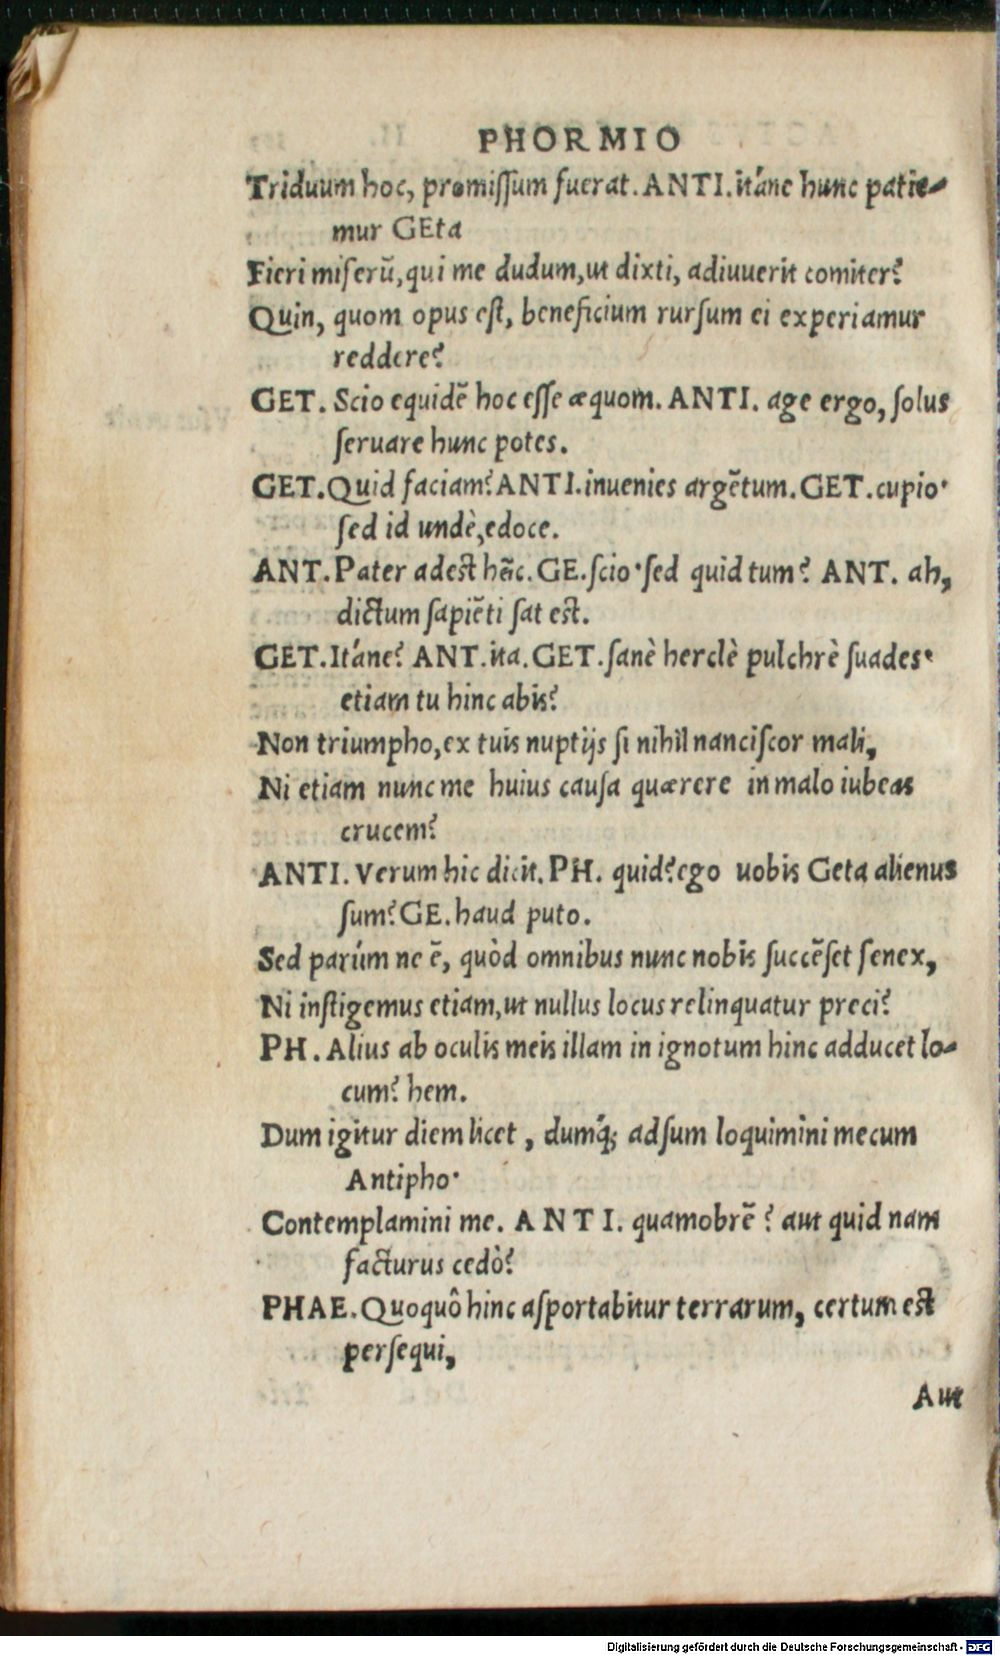 PHORMIO
Triduum hoc, promissum fuerat. ANTI. itáne hunc patie-
mur GEta
Fieri miserũ, qui me dudum, ut dixti, adiuuerit comiter?
Quin, quom opus est, beneficium rursum ei experiamur
reddere?
GET. Scio equidẽ hoc esse æquom. ANTI. age ergo, solus
seruare hunc potes.
GET. Quid faciam? ANTI. inuenies argẽtum. GET. cupio·
sed id undè, edoce.
ANT. Pater adest hĩc. GE. scio· sed quid tum? ANT. ah,
dictum sapiẽti sat est.
GET. Itáne? ANT. ita. GET. sanè herclè pulchrè suades·
etiam tu hinc abis?
Non triumpho, ex tuis nuptijs si nihil nanciscor mali,
Ni etiam nunc me huius causa quærere in malo iubeas
crucem?
ANTI. Verum hic dicit. PH. quid? ego uobis Geta alienus
sum? GE. haud puto.
Sed parúm ne ẽ, quòd omnibus nunc nobis succẽset senex,
Ni instigemus etiam, ut nullus locus relinquatur preci?
PH. Alius ab oculis meis illam in ignotum hinc adducet lo-
cum? hem.
Dum igitur diem licet, dumq́; adsum loquimini mecum
Antipho·
Contemplamini me. ANTI. quamobrẽ? aut quid nam
facturus cedò?
PHAE. Quoquô hinc asportabitur terrarum, certum est
persequi,
Aut
Digitalisierung gefördert durch die Deutsche Forschungsgemeinschaft - DFG